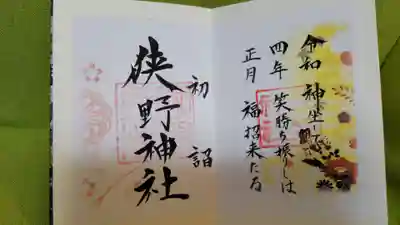 令和 神坐して
四年 笑待ち振りしは
正月 福招来たる
初詣
狭野神社